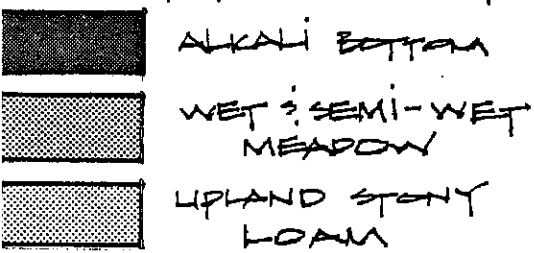 ALKALI BOTTOM
WET & SEMI-WET
MEADOW
UPLAND STONY
LOAM